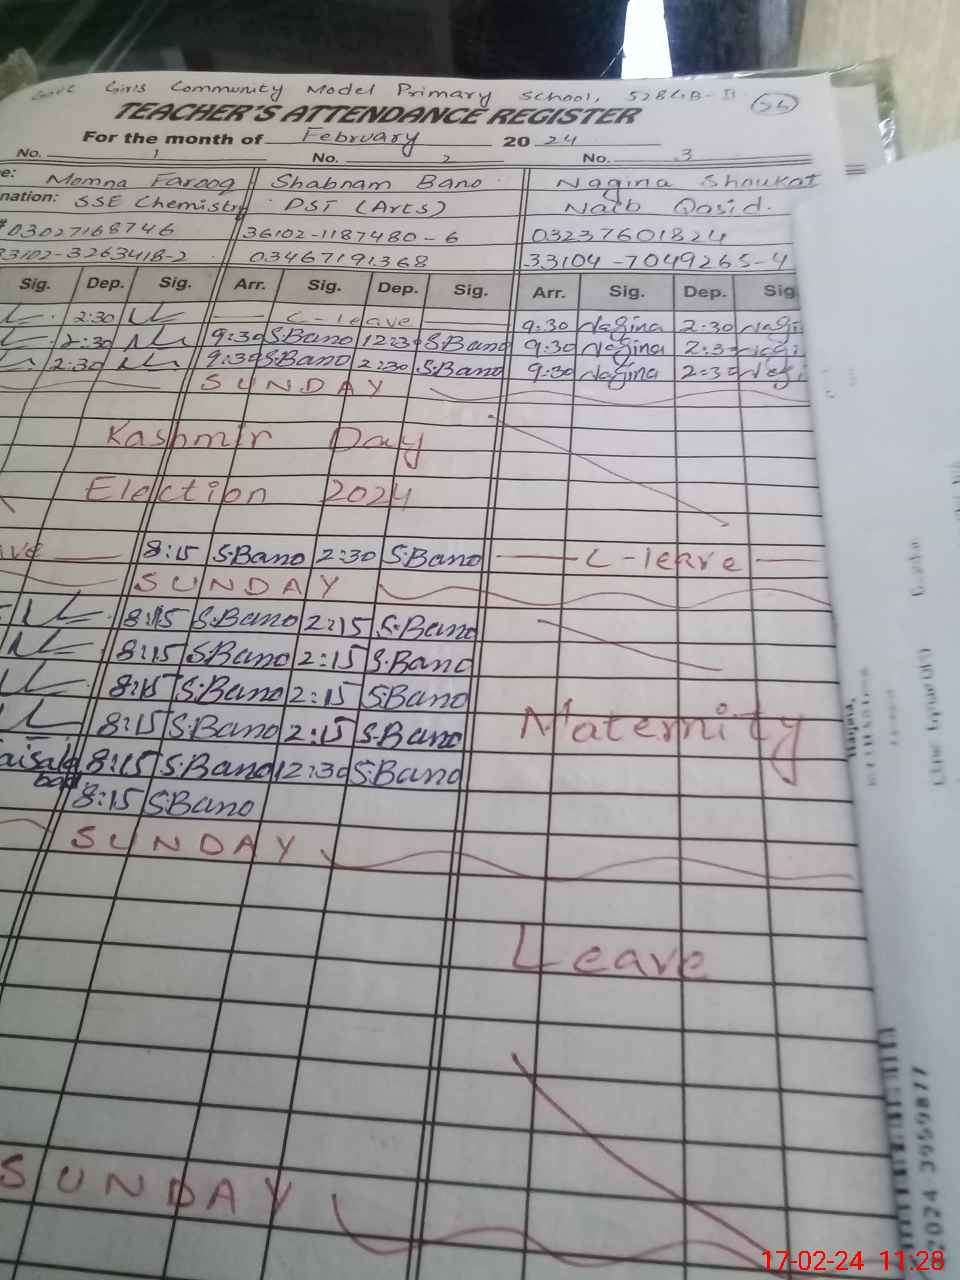 Govt Girls Community Model Primary School, 528GB-II (26)
TEACHER'S ATTENDANCE REGISTER
For the month of February 2024
No. 1 No. 2 No. 3
e: Momna Farooq Shabnam Bano Nagina Shoukat
nation: SSE Chemistry PST (Arts) Naib Qasid.
03027168746 36102-1187480-6 03237601824
33102-3263418-2 03467191368 33104-7049265-4
Sig. Dep. Sig. Arr. Sig. Dep. Sig. Arr. Sig. Dep. Sig
2:30 C-leave 9:30 Nagina 2:30 Nagi
2:30 9:30 S.Bano 12:30 S.Bano 9:30 Nagina 2:30 Nagi
2:30 9:30 S.Bano 2:30 S.Bano 9:30 Nagina 2:30 Nagi
SUNDAY
Kashmir Day
Election 2024
ave 8:15 S.Bano 2:30 S.Bano C-leave
SUNDAY
8:15 S.Bano 2:15 S.Bano
8:15 S.Bano 2:15 S.Bano
8:15 S.Bano 2:15 S.Bano
8:15 S.Bano 2:15 S.Bano Maternity
aisala 8:15 S.Bano 12:30 S.Bano
bad 8:15 S.Bano
SUNDAY
Leave
SUNDAY
2024-3959877
17-02-24 11:28